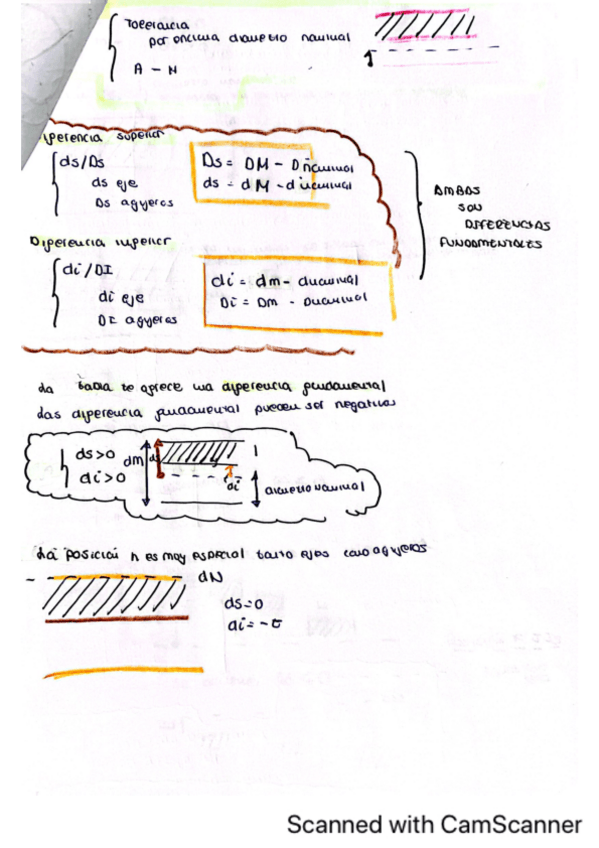 Tolerancia
por encima diametro nominal
A - N
iferencia superior
ds/Ds
ds eje
Ds agujeros
Ds = DM - Dnominal
ds = dM - dnominal
AMBAS
SON
DIFERENCIAS
FUNDAMENTALES
Diferencia inferior
di/DI
di eje
DI agujeros
di = dm - dnominal
Di = Dm - Dnominal
La tabla te ofrece una diferencia fundamental
Las diferencia fundamental pueden ser negativas
ds>0
di>0
dm
ds
di
diametro nominal
La posición h es muy especial tanto ejes como agujeros
dN
ds=0
di=-σ
Scanned with CamScanner